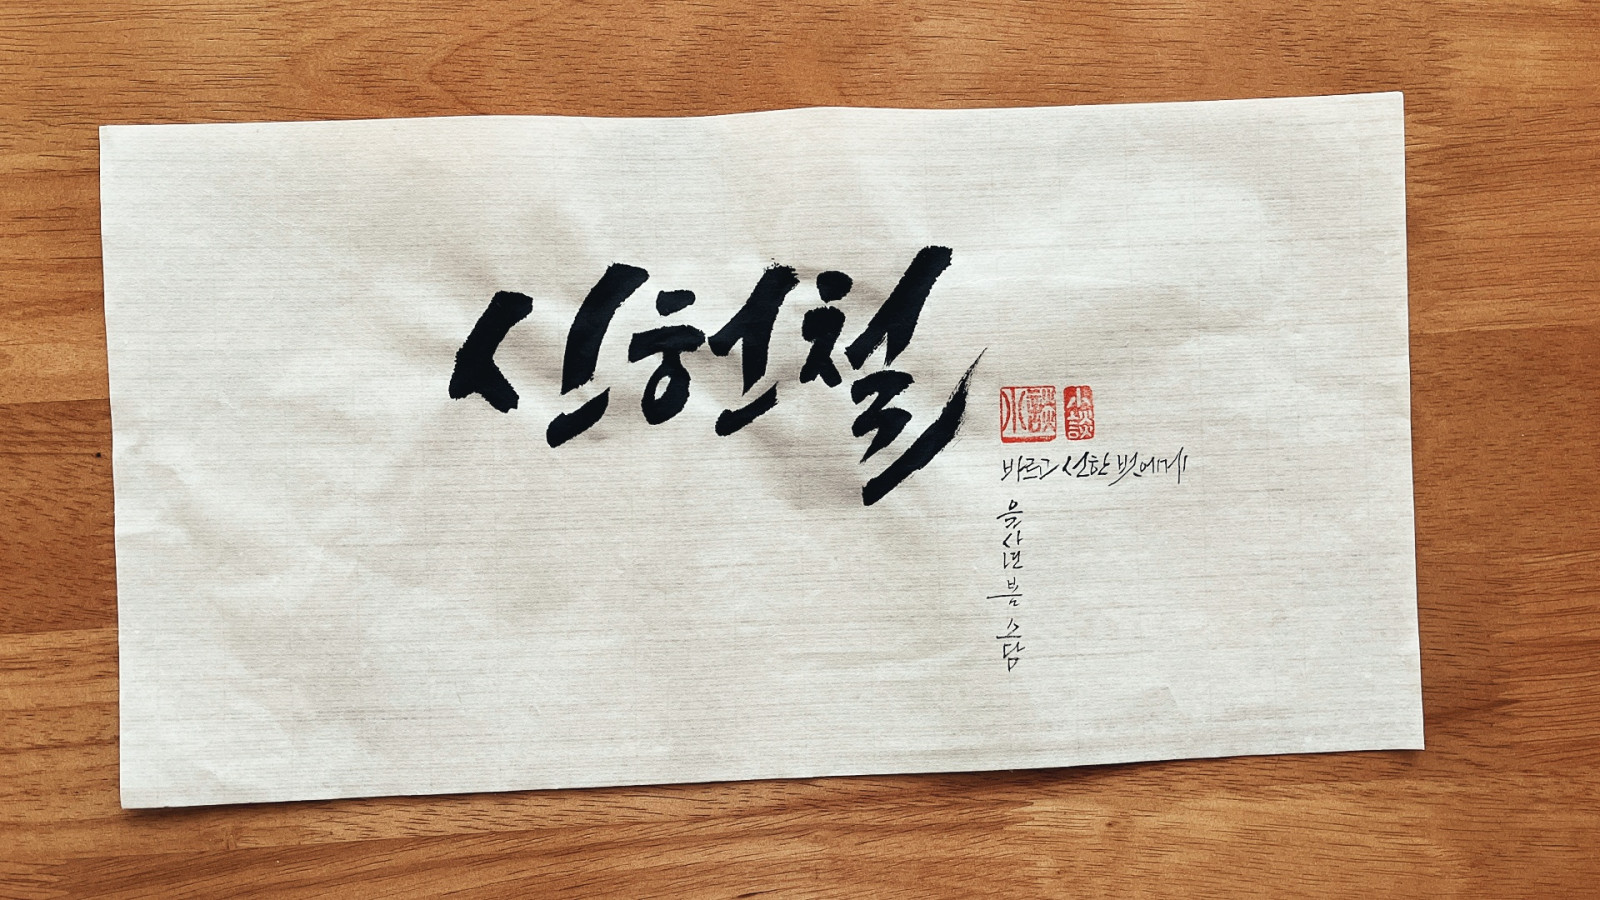 신헌철
小談
小談
바르고 선한 벗에게
을사년 봄 소담